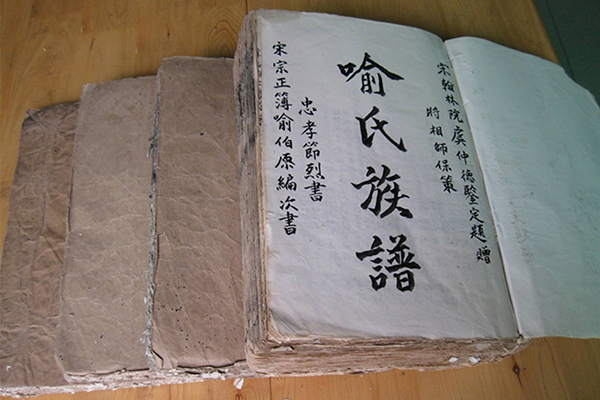 宗翰林院虞仲德鑒定題贈
將相師保策
喻氏族譜
忠孝節烈書
宋宗正簿喻伯原編次書